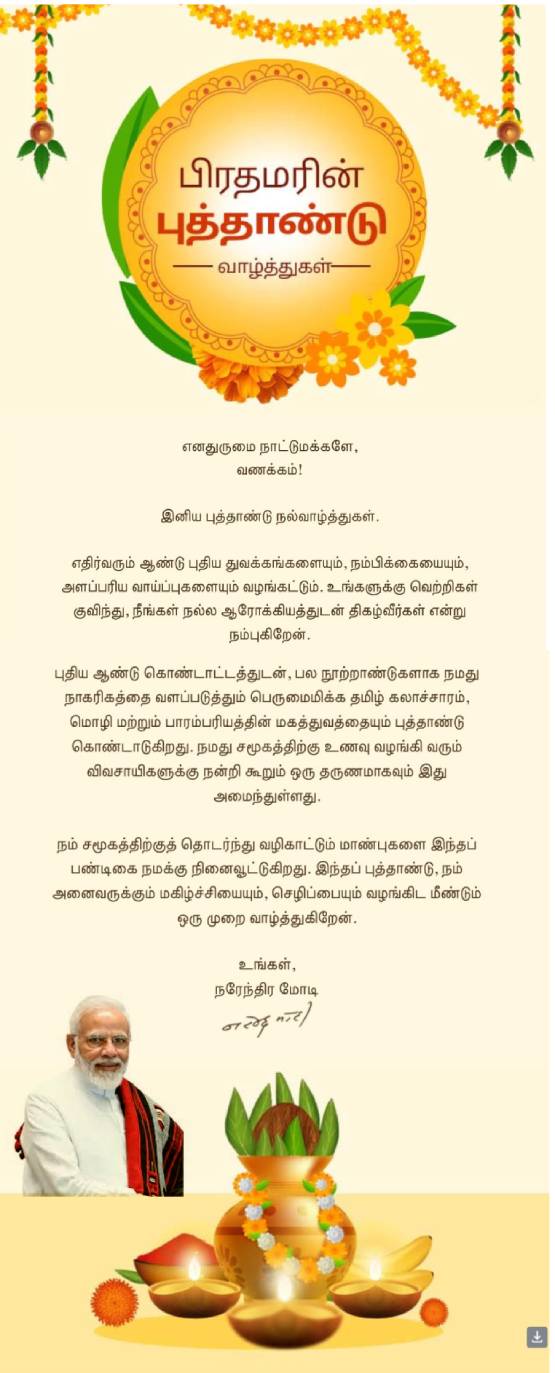 பிரதமரின்
புத்தாண்டு
வாழ்த்துகள்
எனதுருமை நாட்டுமக்களே,
வணக்கம்!
இனிய புத்தாண்டு நல்வாழ்த்துகள்.
எதிர்வரும் ஆண்டு புதிய துவக்கங்களையும், நம்பிக்கையையும்,
அளப்பரிய வாய்ப்புகளையும் வழங்கட்டும். உங்களுக்கு வெற்றிகள்
குவிந்து, நீங்கள் நல்ல ஆரோக்கியத்துடன் திகழ்வீர்கள் என்று
நம்புகிறேன்.
புதிய ஆண்டு கொண்டாட்டத்துடன், பல நூற்றாண்டுகளாக நமது
நாகரிகத்தை வளப்படுத்தும் பெருமைமிக்க தமிழ் கலாச்சாரம்,
மொழி மற்றும் பாரம்பரியத்தின் மகத்துவத்தையும் புத்தாண்டு
கொண்டாடுகிறது. நமது சமூகத்திற்கு உணவு வழங்கி வரும்
விவசாயிகளுக்கு நன்றி கூறும் ஒரு தருணமாகவும் இது
அமைந்துள்ளது.
நம் சமூகத்திற்குத் தொடர்ந்து வழிகாட்டும் மாண்புகளை இந்தப்
பண்டிகை நமக்கு நினைவூட்டுகிறது. இந்தப் புத்தாண்டு, நம்
அனைவருக்கும் மகிழ்ச்சியையும், செழிப்பையும் வழங்கிட மீண்டும்
ஒரு முறை வாழ்த்துகிறேன்.
உங்கள்,
நரேந்திர மோடி